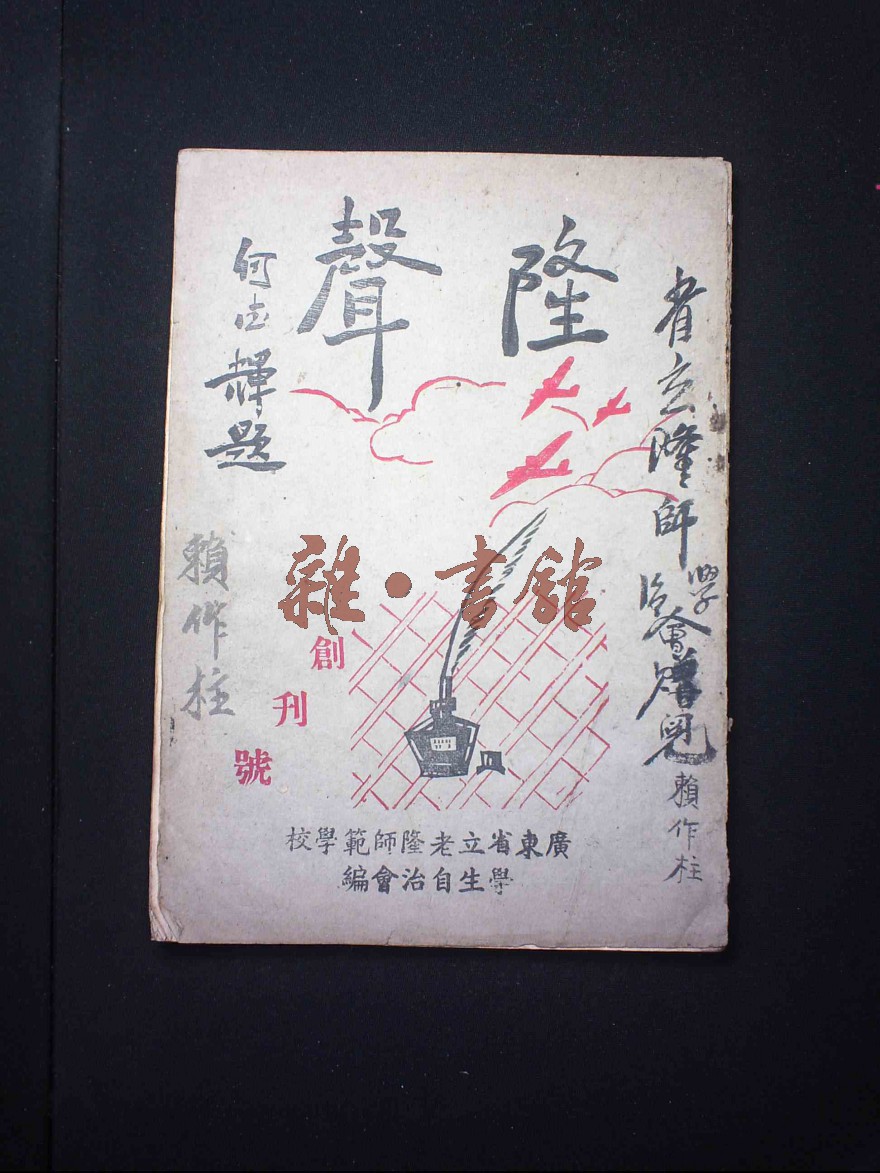 隆聲
何
題
賴作柱
省立隆師
學
會贈
賴作柱
雜·書館
創刊號
廣東省立老隆師範學校
學生自治會編